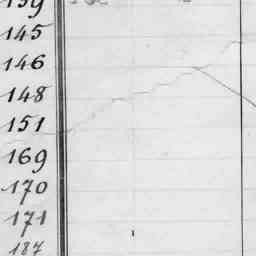 139
145
146
148
151
169
170
171
187